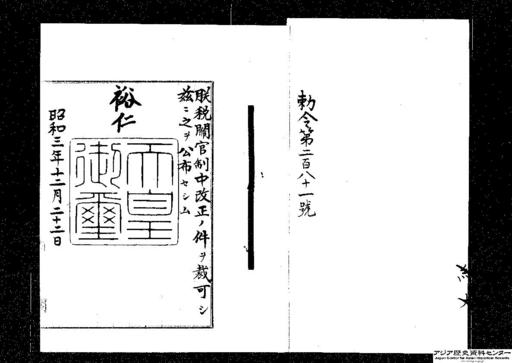 勅令第二百八十一號
朕税關官制中改正ノ件ヲ裁可シ
茲ニ之ヲ公布セシム
裕仁
天皇
御璽
昭和三年十二月二十二日
アジア歴史資料センター
Japan Center for Asian Historical Records